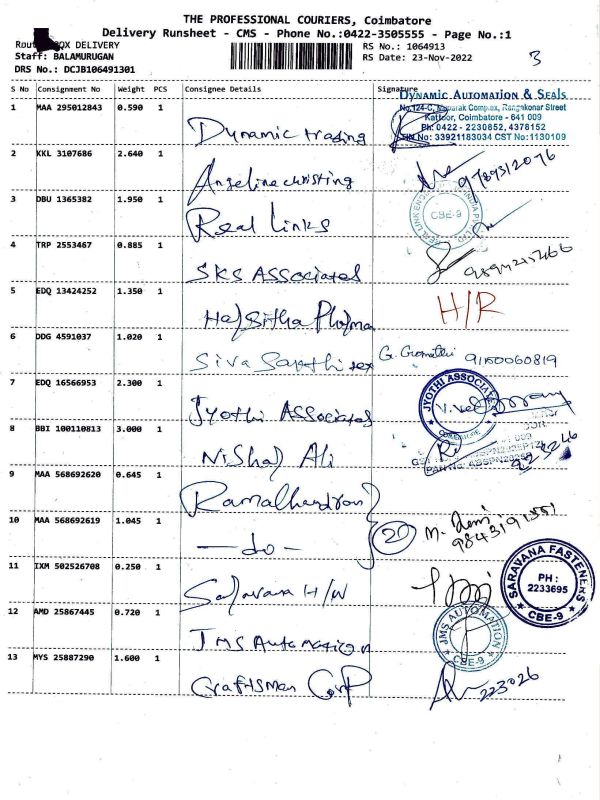 THE PROFESSIONAL COURIERS, Coimbatore
Delivery Runsheet - CMS - Phone No.:0422-3505555 - Page No.:1
BOX DELIVERY
Staff: BALAMURUGAN
DRS No.: DCJB106491301
RS No.: 1064913
RS Date: 23-Nov-2022
3
S No Consignment No Weight PCS Consignee Details Signature
1 MAA 295012843 0.590 1 Dynamic trading
DYNAMIC AUTOMATION & SEALS
No.124-C, Complex, Rangakonar Street
Kattoor, Coimbatore - 641 009
Ph: 0422 - 2230852, 4378152
TIN No: 33921183034 CST No: 1130109
2 KKL 3107686 2.640 1 Angelinechristing
9789312076
3 DBU 1365382 1.950 1 Real Links
CBE-9
4 TRP 2553467 0.885 1 SKS Associates
5 EDQ 13424252 1.350 1 Harsitha Pharma H/R
6 DDG 4591037 1.020 1 Siva Sakthi tex G. Gomathi 9150060819
7 EDQ 16566953 2.300 1 Jyothi Associates
JYOTHI ASSOCIATES
COIMBATORE
8 BBI 100110813 3.000 1 Nishar Ali
223246
9 MAA 568692620 0.645 1 Ramalhandran
10 MAA 568692619 1.045 1 - do -
20
9843191351
11 IXM 502526708 0.250 1 Saravana H/W
SARAVANA FASTENERS
PH :
2233695
CBE-9
12 AMD 25867445 0.720 1 JMS Automation
JMS AUTOMATION
CBE-9
13 MYS 25887290 1.600 1 Craftsman Corp
223026